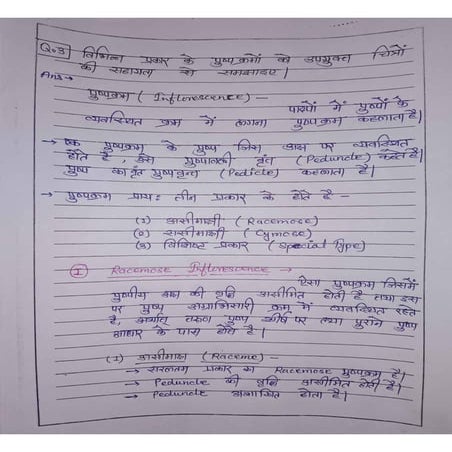 Q.3) विभिन्न प्रकार के पुष्पक्रमों को उपयुक्त चित्रों
की सहायता से समझाइए।
Ans →
पुष्पक्रम (Inflorescence) —
पादपों में पुष्पों के
व्यवस्थित क्रम में लगना पुष्पक्रम कहलाता है।
→ एक पुष्पक्रम के पुष्प जिस अक्ष पर व्यवस्थित
होते हैं, उसे पुष्पावली वृंत (Peduncle) कहते हैं।
पुष्प का वृंत पुष्पवृन्त (Pedicle) कहलाता है।
→ पुष्पक्रम प्रायः तीन प्रकार के होते है —
(1) असीमाक्षी (Racemose)
(2) ससीमाक्षी (Cymose)
(3) विशिष्ट प्रकार (Special Type)
I Racemose Inflorescence →
ऐसा पुष्पक्रम जिसमें
पुष्पीय अक्ष की वृद्धि असीमित होती है तथा इस
पर पुष्प अग्राभिसारी क्रम में व्यवस्थित रहते
है, अर्थात तरुण पुष्प शीर्ष पर तथा पुराने पुष्प
आधार के पास होते है।
(1) असीमाक्ष (Raceme) —
→ सरलतम प्रकार का Racemose पुष्पक्रम है।
→ Peduncle की वृद्धि असीमित होती है।
→ Peduncle अशाखित होता है।